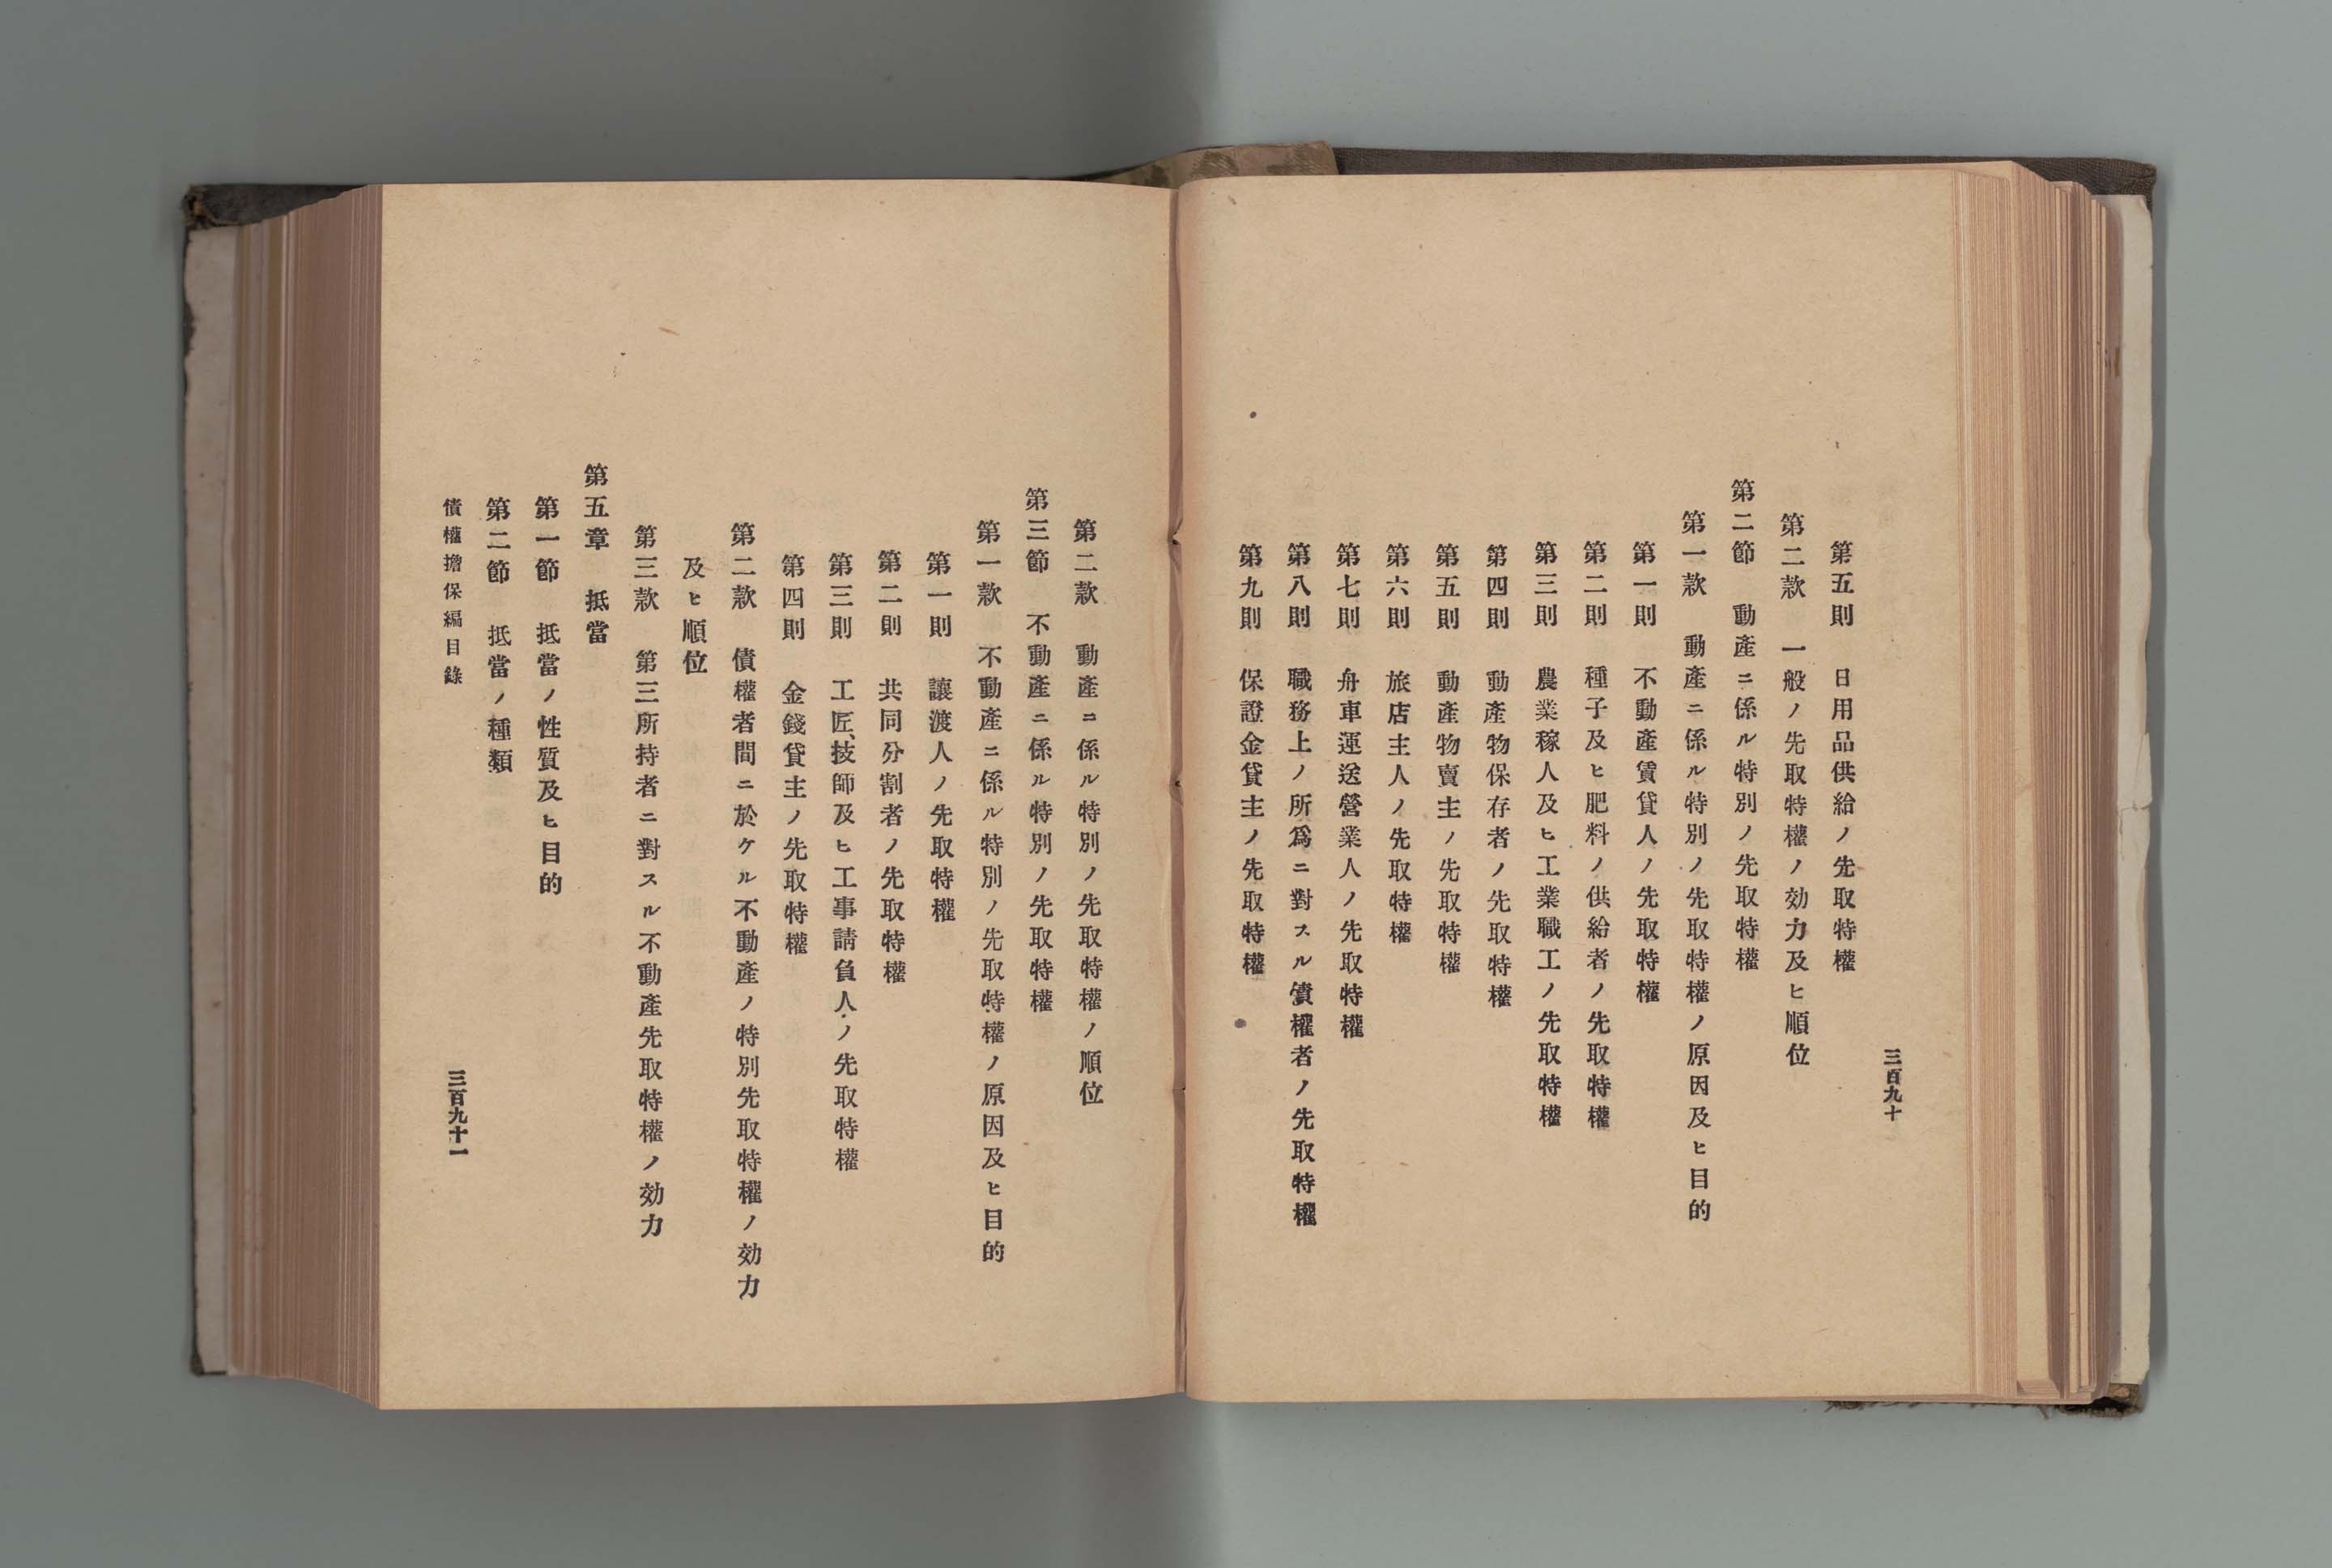 三百九十
第五則　日用品供給ノ先取特權
第二款　一般ノ先取特權ノ効力及ヒ順位
第二節　動產ニ係ル特別ノ先取特權
第一款　動產ニ係ル特別ノ先取特權ノ原因及ヒ目的
第一則　不動產賃貸人ノ先取特權
第二則　種子及ヒ肥料ノ供給者ノ先取特權
第三則　農業稼人及ヒ工業職工ノ先取特權
第四則　動產物保存者ノ先取特權
第五則　動產物賣主ノ先取特權
第六則　旅店主人ノ先取特權
第七則　舟車運送營業人ノ先取特權
第八則　職務上ノ所爲ニ對スル債權者ノ先取特權
第九則　保證金貸主ノ先取特權
第二款　動產ニ係ル特別ノ先取特權ノ順位
第三節　不動產ニ係ル特別ノ先取特權
第一款　不動產ニ係ル特別ノ先取特權ノ原因及ヒ目的
第一則　讓渡人ノ先取特權
第二則　共同分割者ノ先取特權
第三則　工匠、技師及ヒ工事請負人ノ先取特權
第四則　金錢貸主ノ先取特權
第二款　債權者間ニ於ケル不動產ノ特別先取特權ノ効力
及ヒ順位
第三款　第三所持者ニ對スル不動產先取特權ノ効力
第五章　抵當
第一節　抵當ノ性質及ヒ目的
第二節　抵當ノ種類
債權擔保編目錄
三百九十一